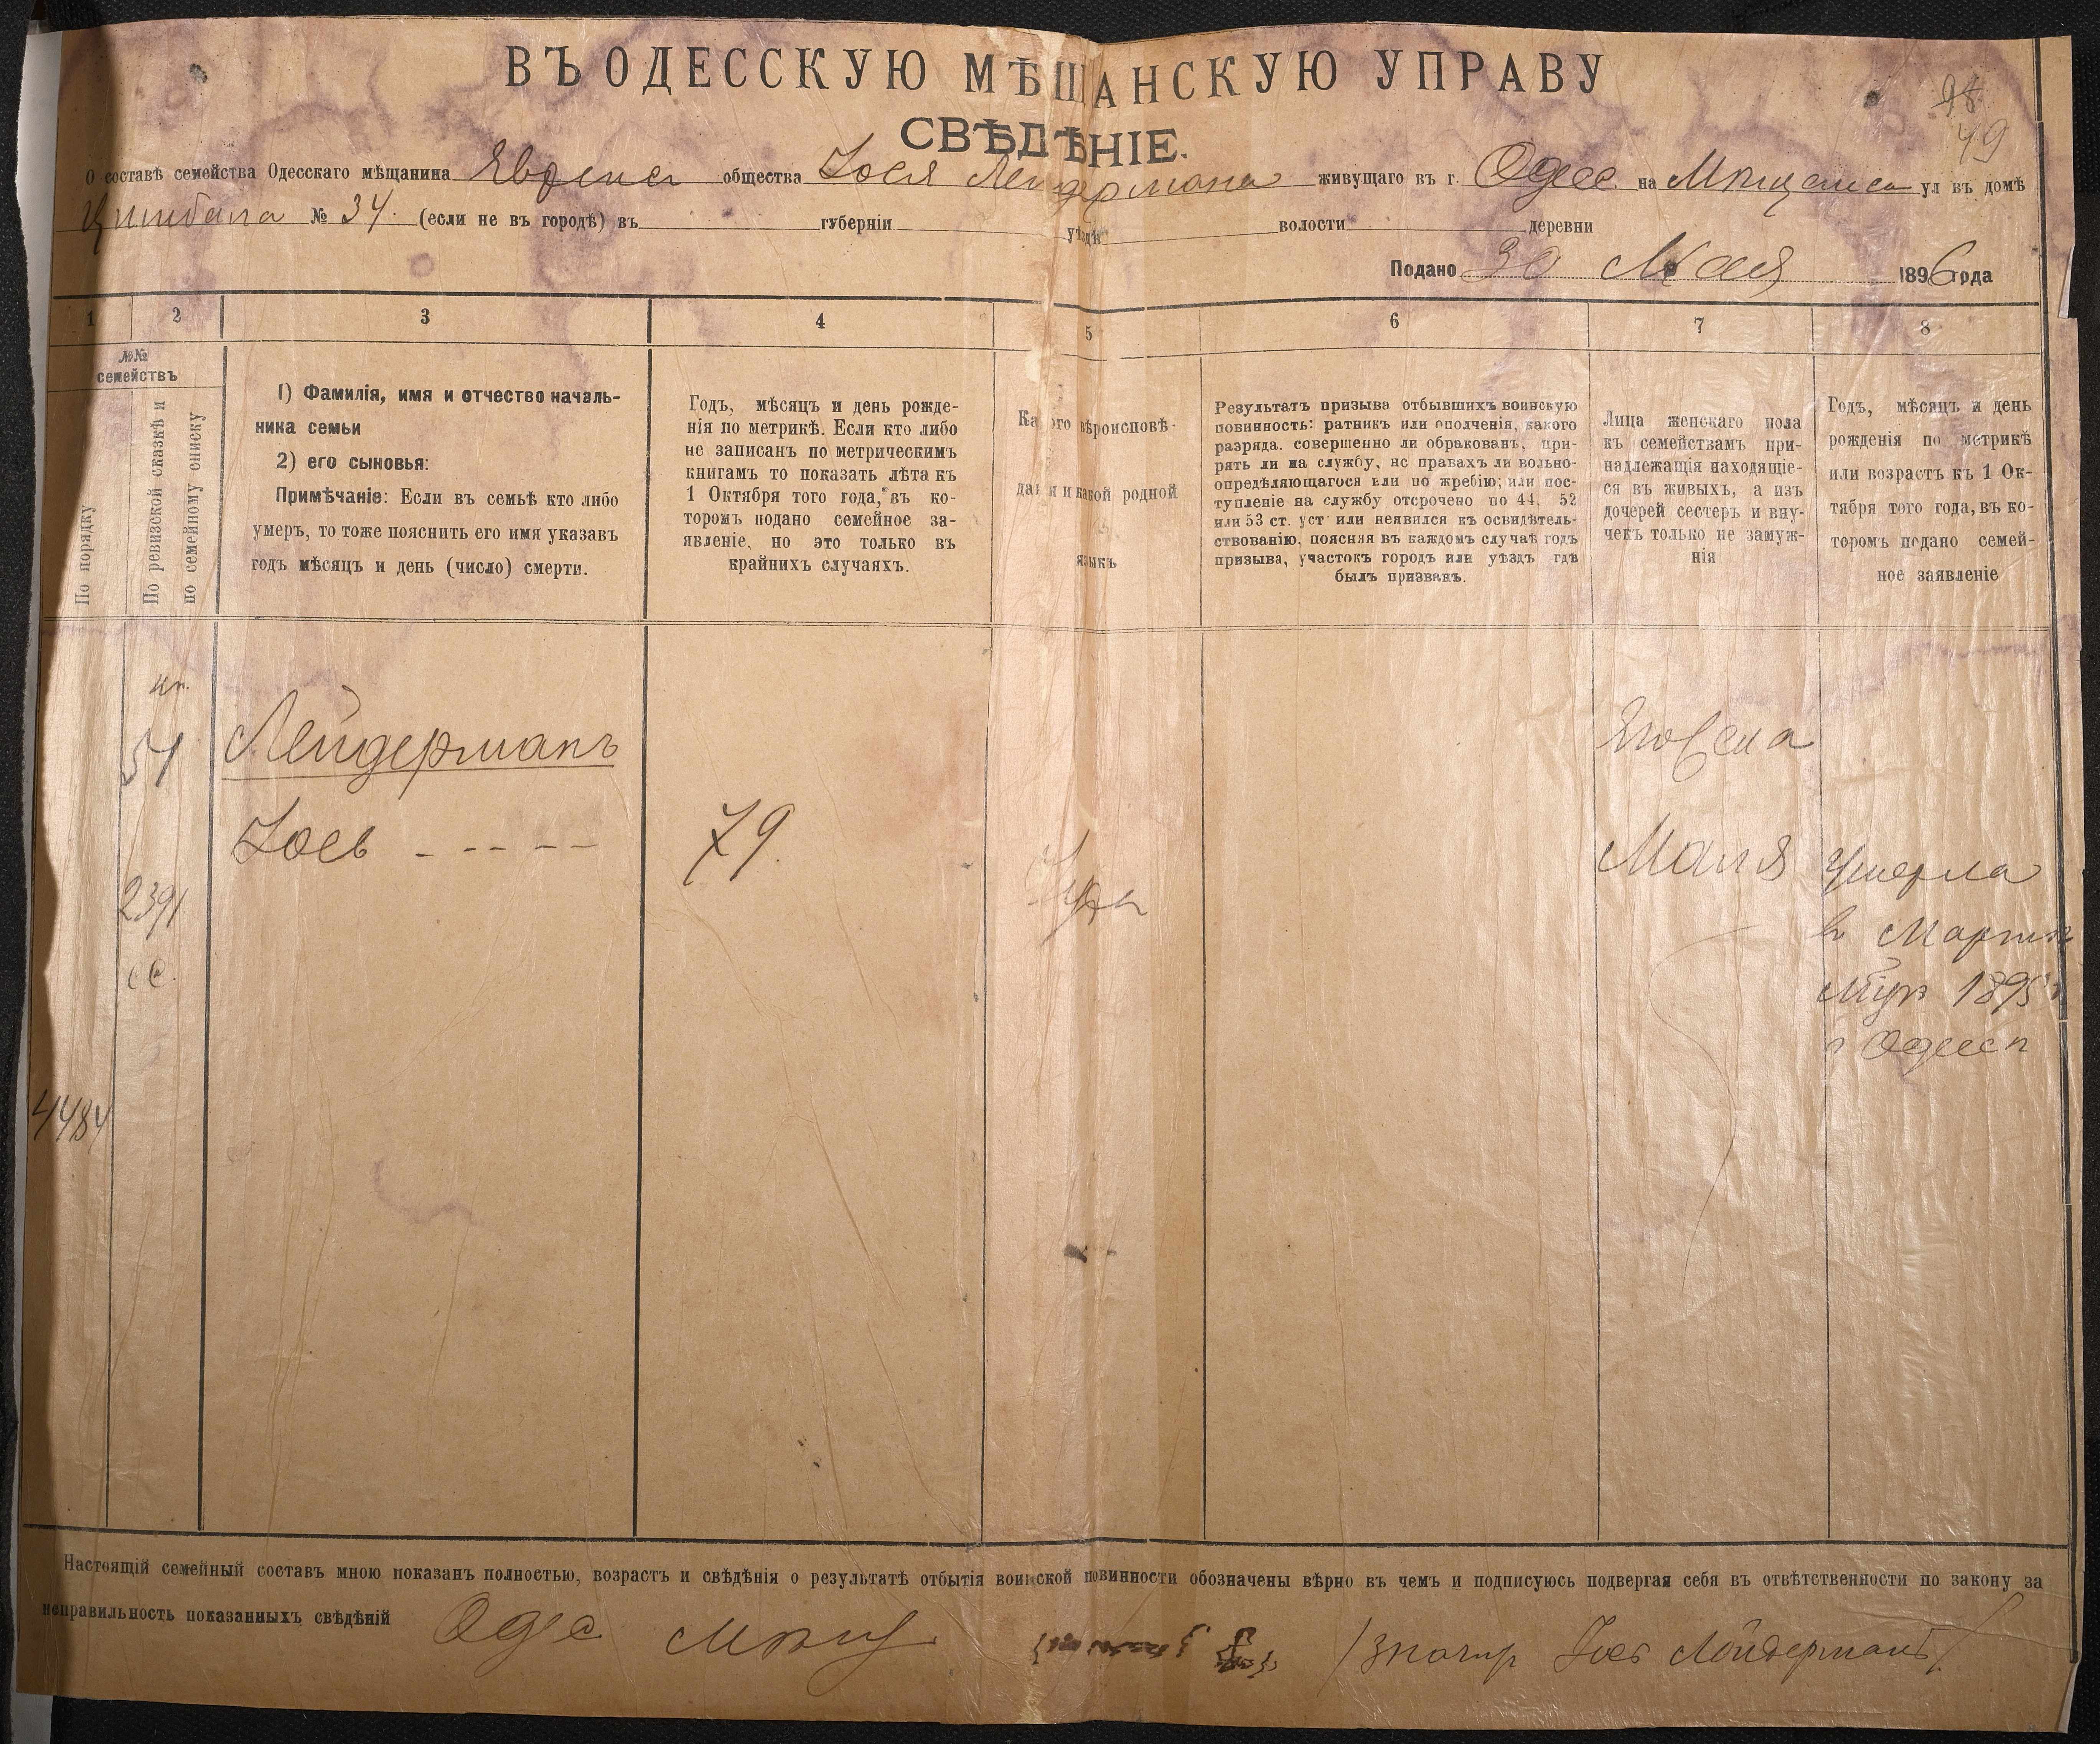 ВЪ ОДЕССКУЮ МѢЩАНСКУЮ УПРАВУ
98
49
СВѢДѢНІЕ.
О составѣ семейства Одесскаго мѣщанина Еврейск общества Іося Лейдермана живущаго въ г. Одесс на Мѣщанск ул въ домѣ
Цимбала № 34. (если не въ городѣ) въ губерніи уѣздѣ волости деревни
Подано 30 Мая 1896 года
1 2 3 4 5 6 7 8
№№ семействъ
По порядку
По ревизской сказкѣ и
по семейному списку
1) Фамилія, имя и отчество началь-
ника семьи
2) его сыновья:
Примѣчаніе: Если въ семьѣ кто либо
умеръ, то тоже пояснить его имя указавъ
годъ мѣсяцъ и день (число) смерти.
Годъ, мѣсяцъ и день рожде-
нія по метрикѣ. Если кто либо
не записанъ по метрическимъ
книгамъ то показать лѣта къ
1 Октября того года, въ ко-
торомъ подано семейное за-
явленіе, но это только въ
крайнихъ случаяхъ.
Ка ого вѣроисповѣ-
данія и какой родной
языкъ
Результатъ призыва отбывшихъ воинскую
повинность: ратникъ или ополченія, какого
разряда. совершенно ли обракованъ, при-
рять ли на службу, нс правахъ ли вольно-
опредѣляющагося или по жребію; или пос-
тупленіе на службу отсрочено по 44, 52
или 53 ст. уст или неявился къ освидѣтель-
ствованію, поясняя въ каждомъ случаѣ годъ
призыва, участокъ городъ или уѣздъ гдѣ
былъ призванъ.
Лица женскаго пола
къ семействамъ при-
надлежащія находящіе-
ся въ живыхъ, а изъ
дочерей сестеръ и вну-
чекъ только не замуж-
нія
Годъ, мѣсяцъ и день
рожденія по метрикѣ
или возрастъ къ 1 Ок-
тября того года, въ ко-
торомъ подано семей-
ное заявленіе
51 Лейдерманъ
Іось 79.
Іуд
Его жена
Маня Умерла
в Мартѣ
мцѣ 1895 г
г Одессѣ
2391
сс.
4484
Настоящій семейный составъ мною показанъ полностью, возрастъ и свѣдѣнія о результатѣ отбытія воинской повинности обозначены вѣрно въ чемъ и подписуюсь подвергая себя въ отвѣтственности по закону за
неправильность показанныхъ свѣдѣній Одес мѣщ /значит Іось Лейдерманъ/